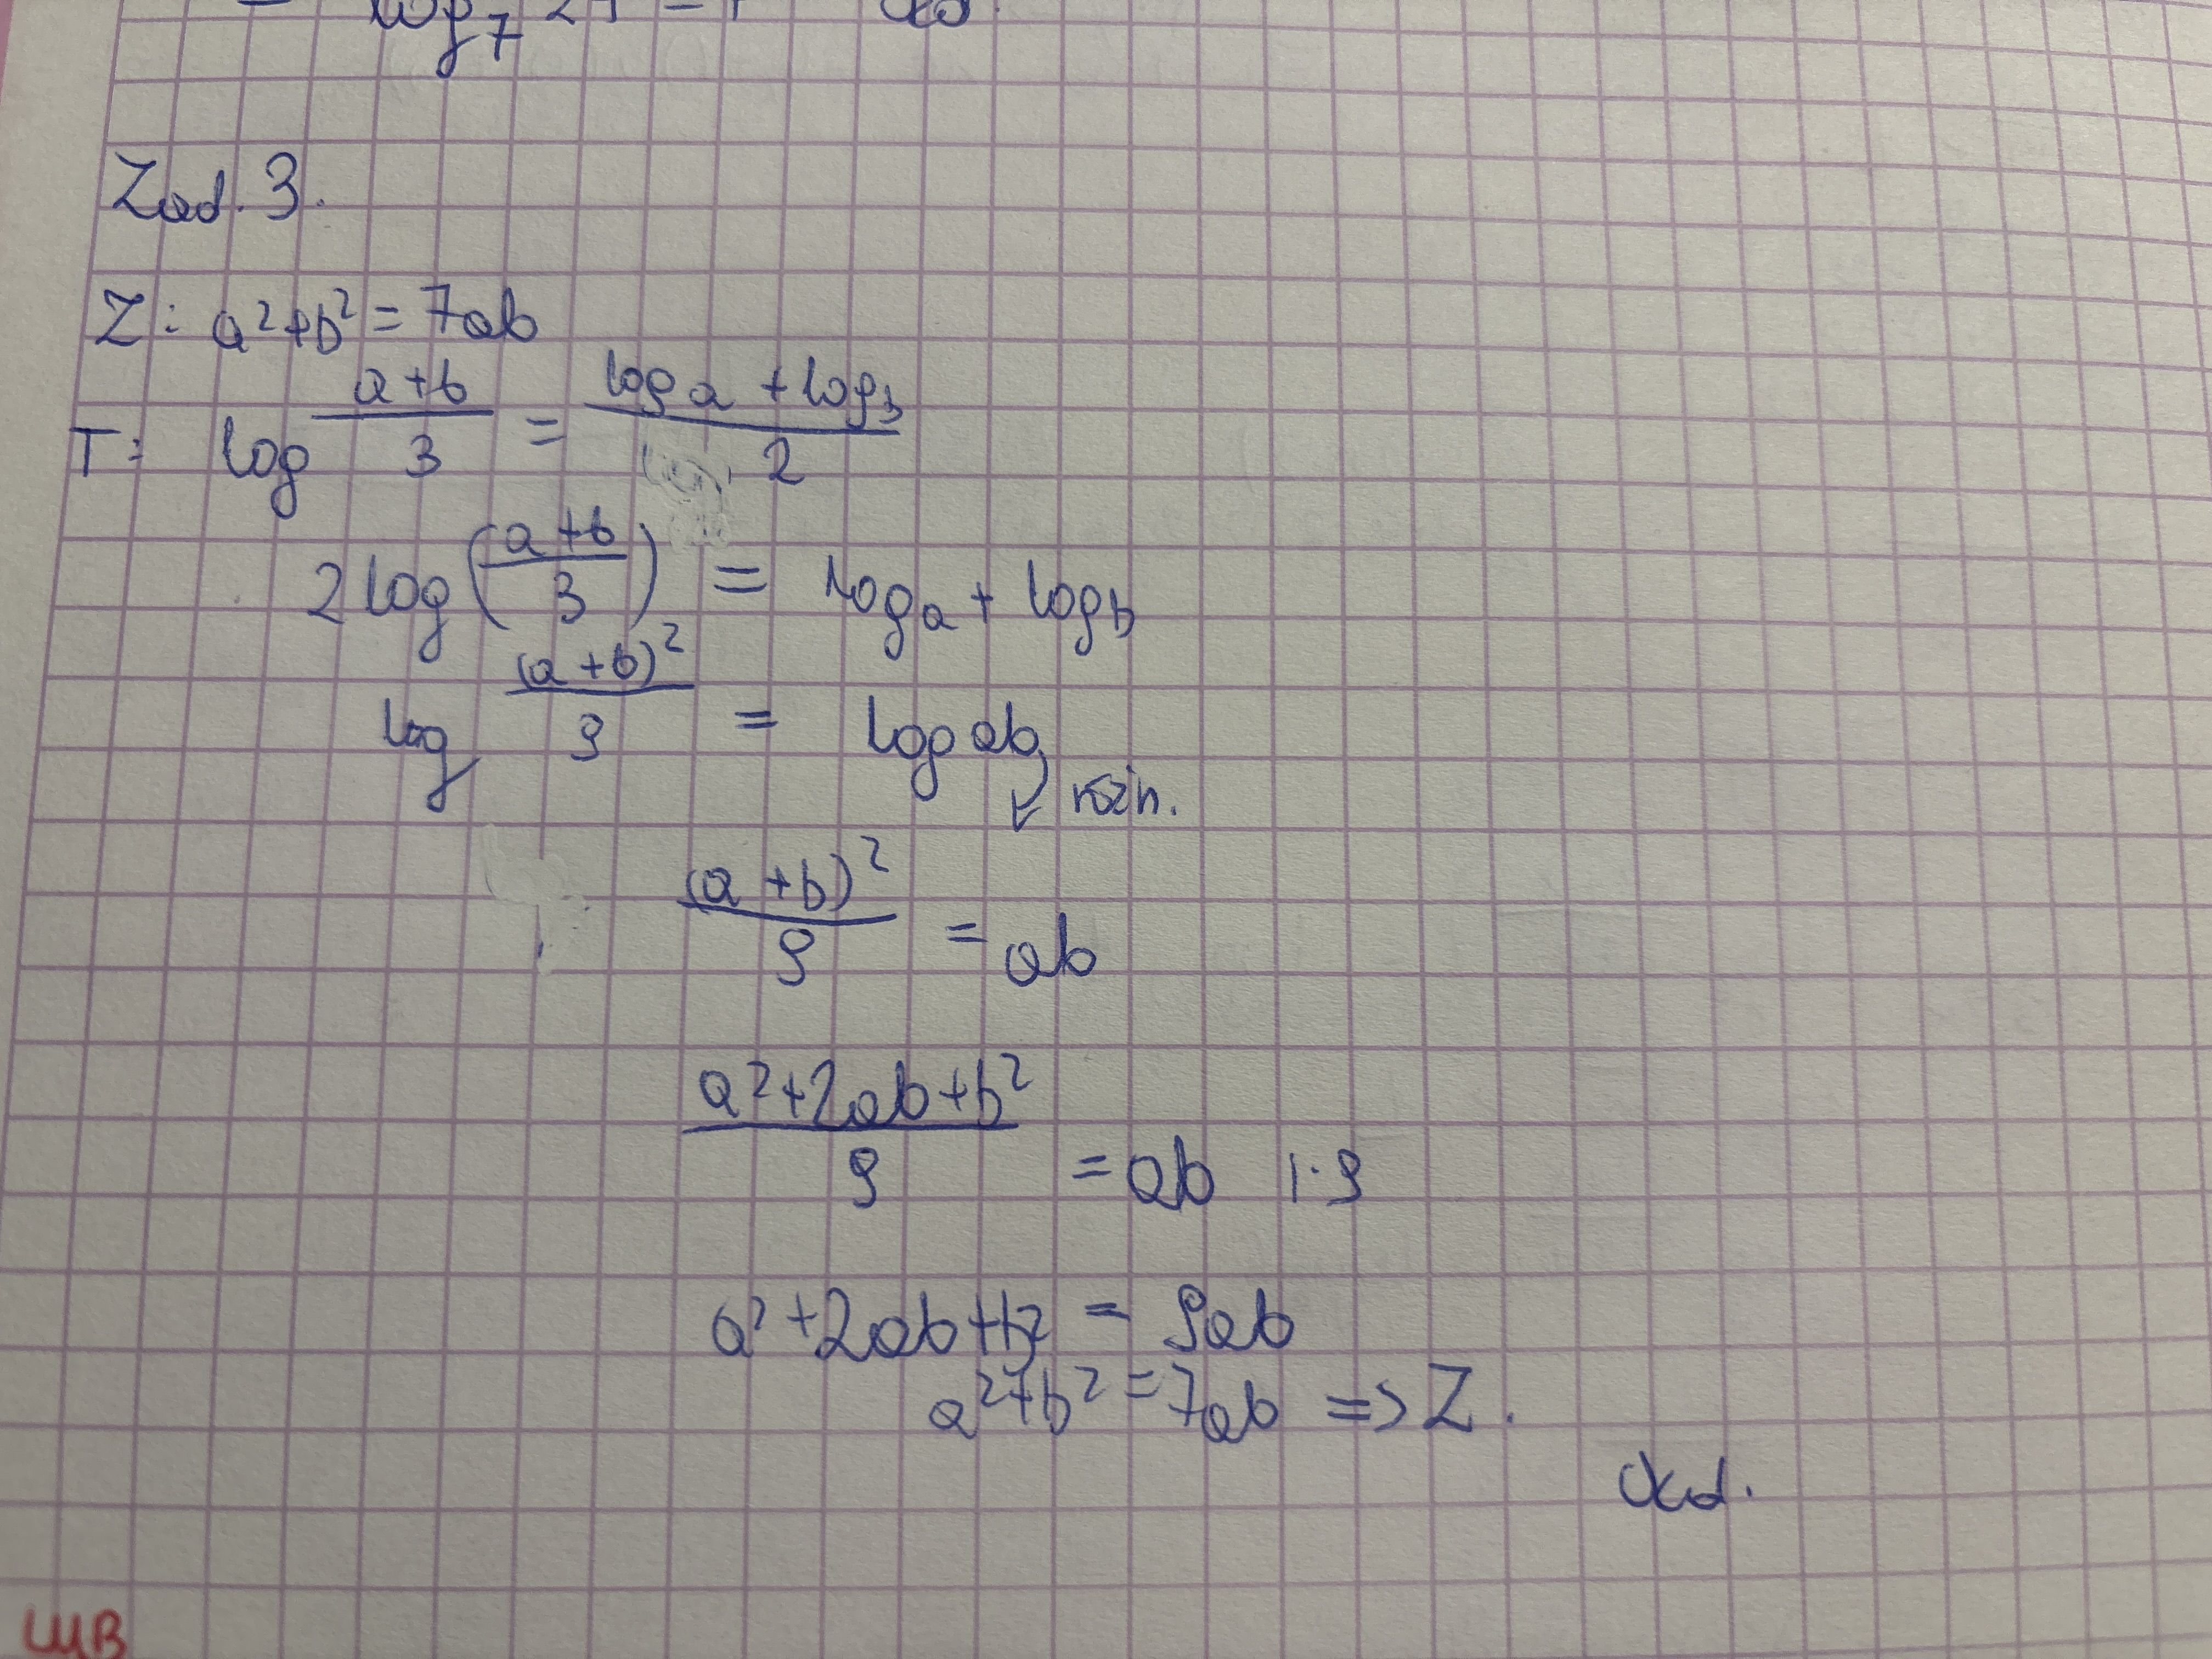 log₇
Zad. 3.
Z: a²+b² = 7ab
T: log (a+b)/3 = (log a + log b)/2
2 log ((a+b)/3) = log a + log b
log (a+b)²/9 = log ab
różn.
(a+b)²/9 = ab
(a²+2ab+b²)/9 = ab |·9
a²+2ab+b² = 9ab
a²+b² = 7ab => Z.
Ckd.